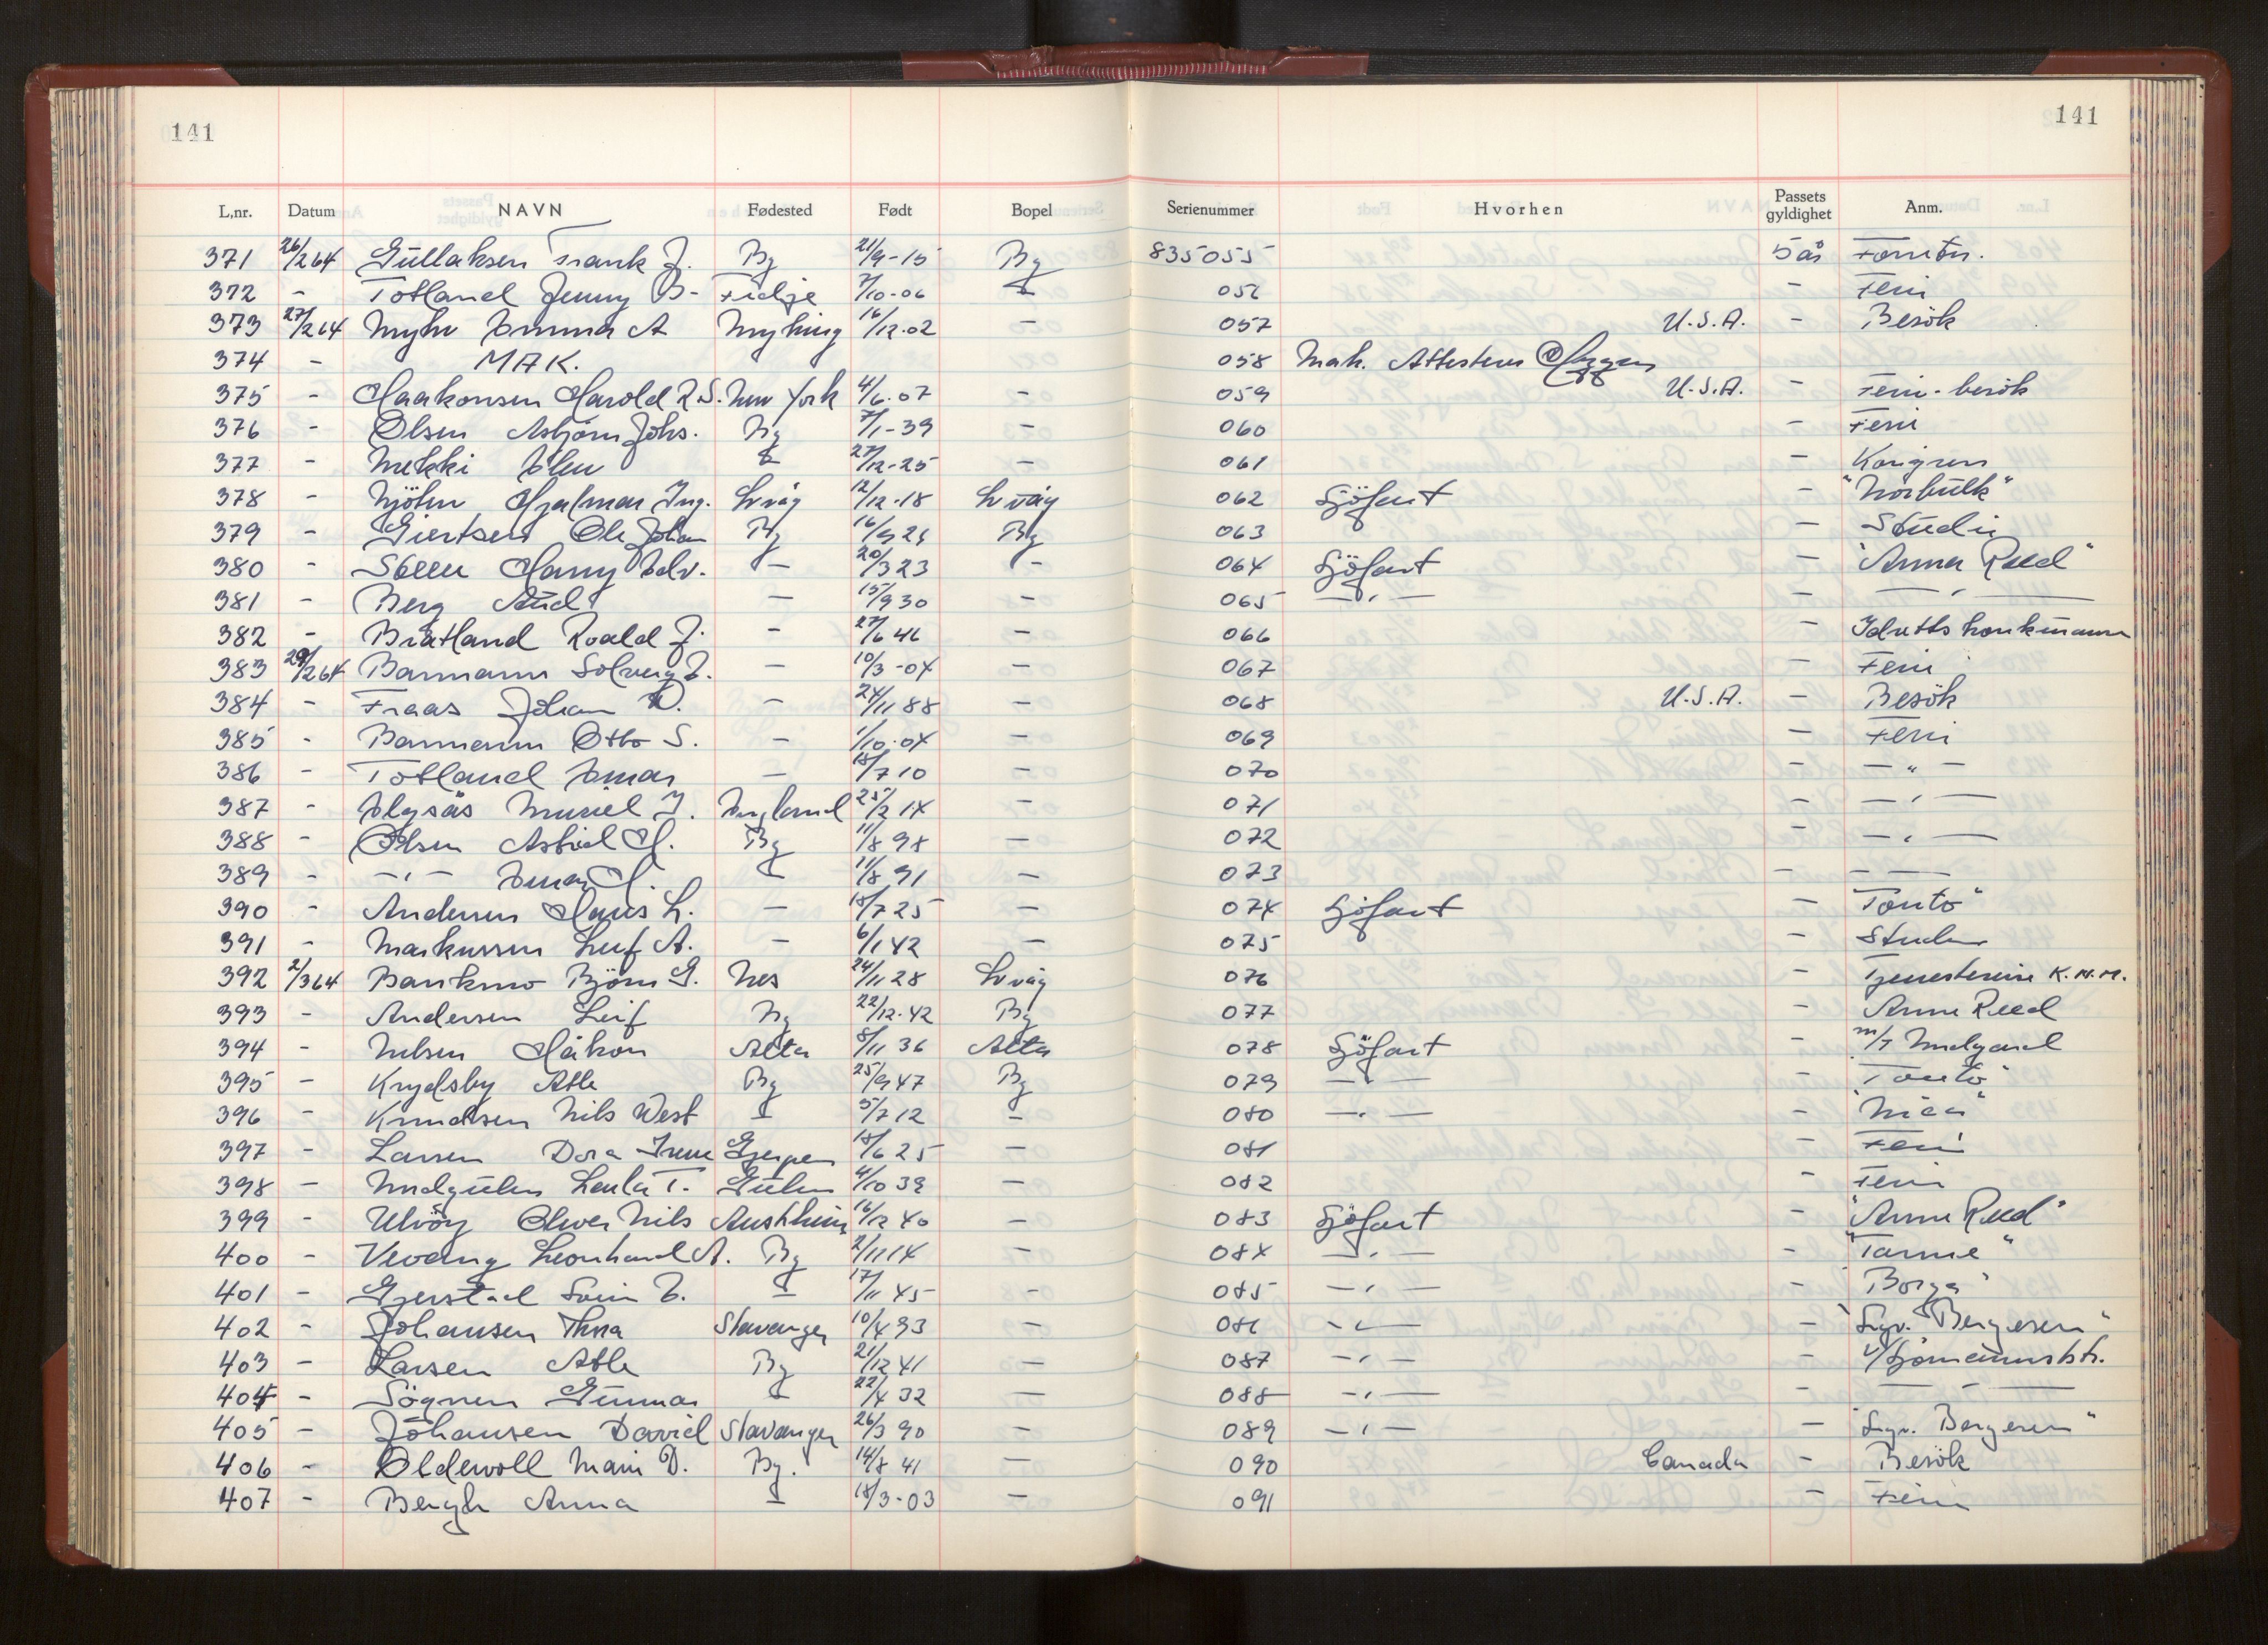 141 141
L,nr. Datum NAVN Fødested Født Bopel Serienummer Hvorhen Passets gyldighet Anm.
371 26/2 64 Gullaksen Frank J. Bg 21/9-15 Bg 835055 5 år
372 - Totland Jenny B- Fedje 7/10-06 - 056 - Feri
373 27/2 64 A Myking 16/12.02 - 057 U.S.A. - Besök
374 - MAK. 058 Mak. Attesteres
375 - Haakonsen Harold R S. New York 4/6.07 - 059 U.S.A. - Ferie-besök
376 - Olsen Asbjörn Johs. Bg 7/1-39 - 060 - Feri
377 - Mekki - 27/12-25 - 061 - Kongress
378 - Hjalmar Ing. Lrvåg 12/12-18 Lrvåg 062 Sjöfart - "Norbulk"
379 - Giertsen Ole Johan Bg 16/9 24 Bg 063 - Studie
380 - Steen Harry Edv. - 20/3 23 - 064 Sjöfart - "Anna Reed"
381 - Berg Aud - 15/9 30 - 065 -"- - -"-
382 - Bratland Roald J. - 27/6 46 - 066 -
383 29/2 64 Barmann Solveig E. - 10/3-04 - 067 - Feri
384 - Fraas Johan D. - 24/11 88 - 068 U.S.A. - Besök
385 - Barmann Otto S. - 1/10-04 - 069 - Feri
386 - Totland Einar - 18/7 10 - 070 - -"-
387 - Elgsås Muriel J. England 25/2 14 - 071 - -"-
388 - Olsen Astrid H. Bg 11/8 98 - 072 - -"-
389 - -"- Einar H. - 11/8 91 - 073 - - -
390 - Andersen Hans L. - 18/7 25 - 074 Sjöfart - "Tonto"
391 - Markussen Leif A. - 6/1 42 - 075 -
392 2/3 64 Björn G. Nes 24/11 28 Lrvåg 076 - Tjenestereise K.N.M.
393 - Andersen Leif Bg 22/12-42 Bg 077 - Anna Reed
394 - Nilsen Håkon Alta 8/11 36 Alta 078 Sjöfart - m/T Midgard
395 - Krydsby Atle Bg 25/9 47 Bg 079 -"- - "Tonto"
396 - Knudsen Nils West - 5/7 12 - 080 -"- -
397 - Larsen Dora Irene Gjerpen 18/6 25 - 081 - Feri
398 - Midgulen T. Gulen 4/10 39 - 082 - Feri
399 - Oliver Nils Austrheim 16/12 40 - 083 Sjöfart - "Anna Reed"
400 - Vevang Leonhard A. Bg 2/11 14 - 084 -"- -
401 - Gjerstad Svein E. - 17/11 45 - 085 -"- - "Borga"
402 - Johansen Thora Stavanger 10/4 93 - 086 -"- - "Sigv. Bergesen"
403 - Larsen Atle Bg 21/12 41 - 087 -"- -
404 - Sögnen Gunnar - 22/4 32 - 088 -"- - - - -
405 - Johansen David Stavanger 26/3 90 - 089 -"- - "Sigv. Bergesen"
406 - Oldervoll D. Bg. 14/8 41 - 090 Canada - Besök
407 - Bergh Anna - 18/3-03 - 091 - Feri